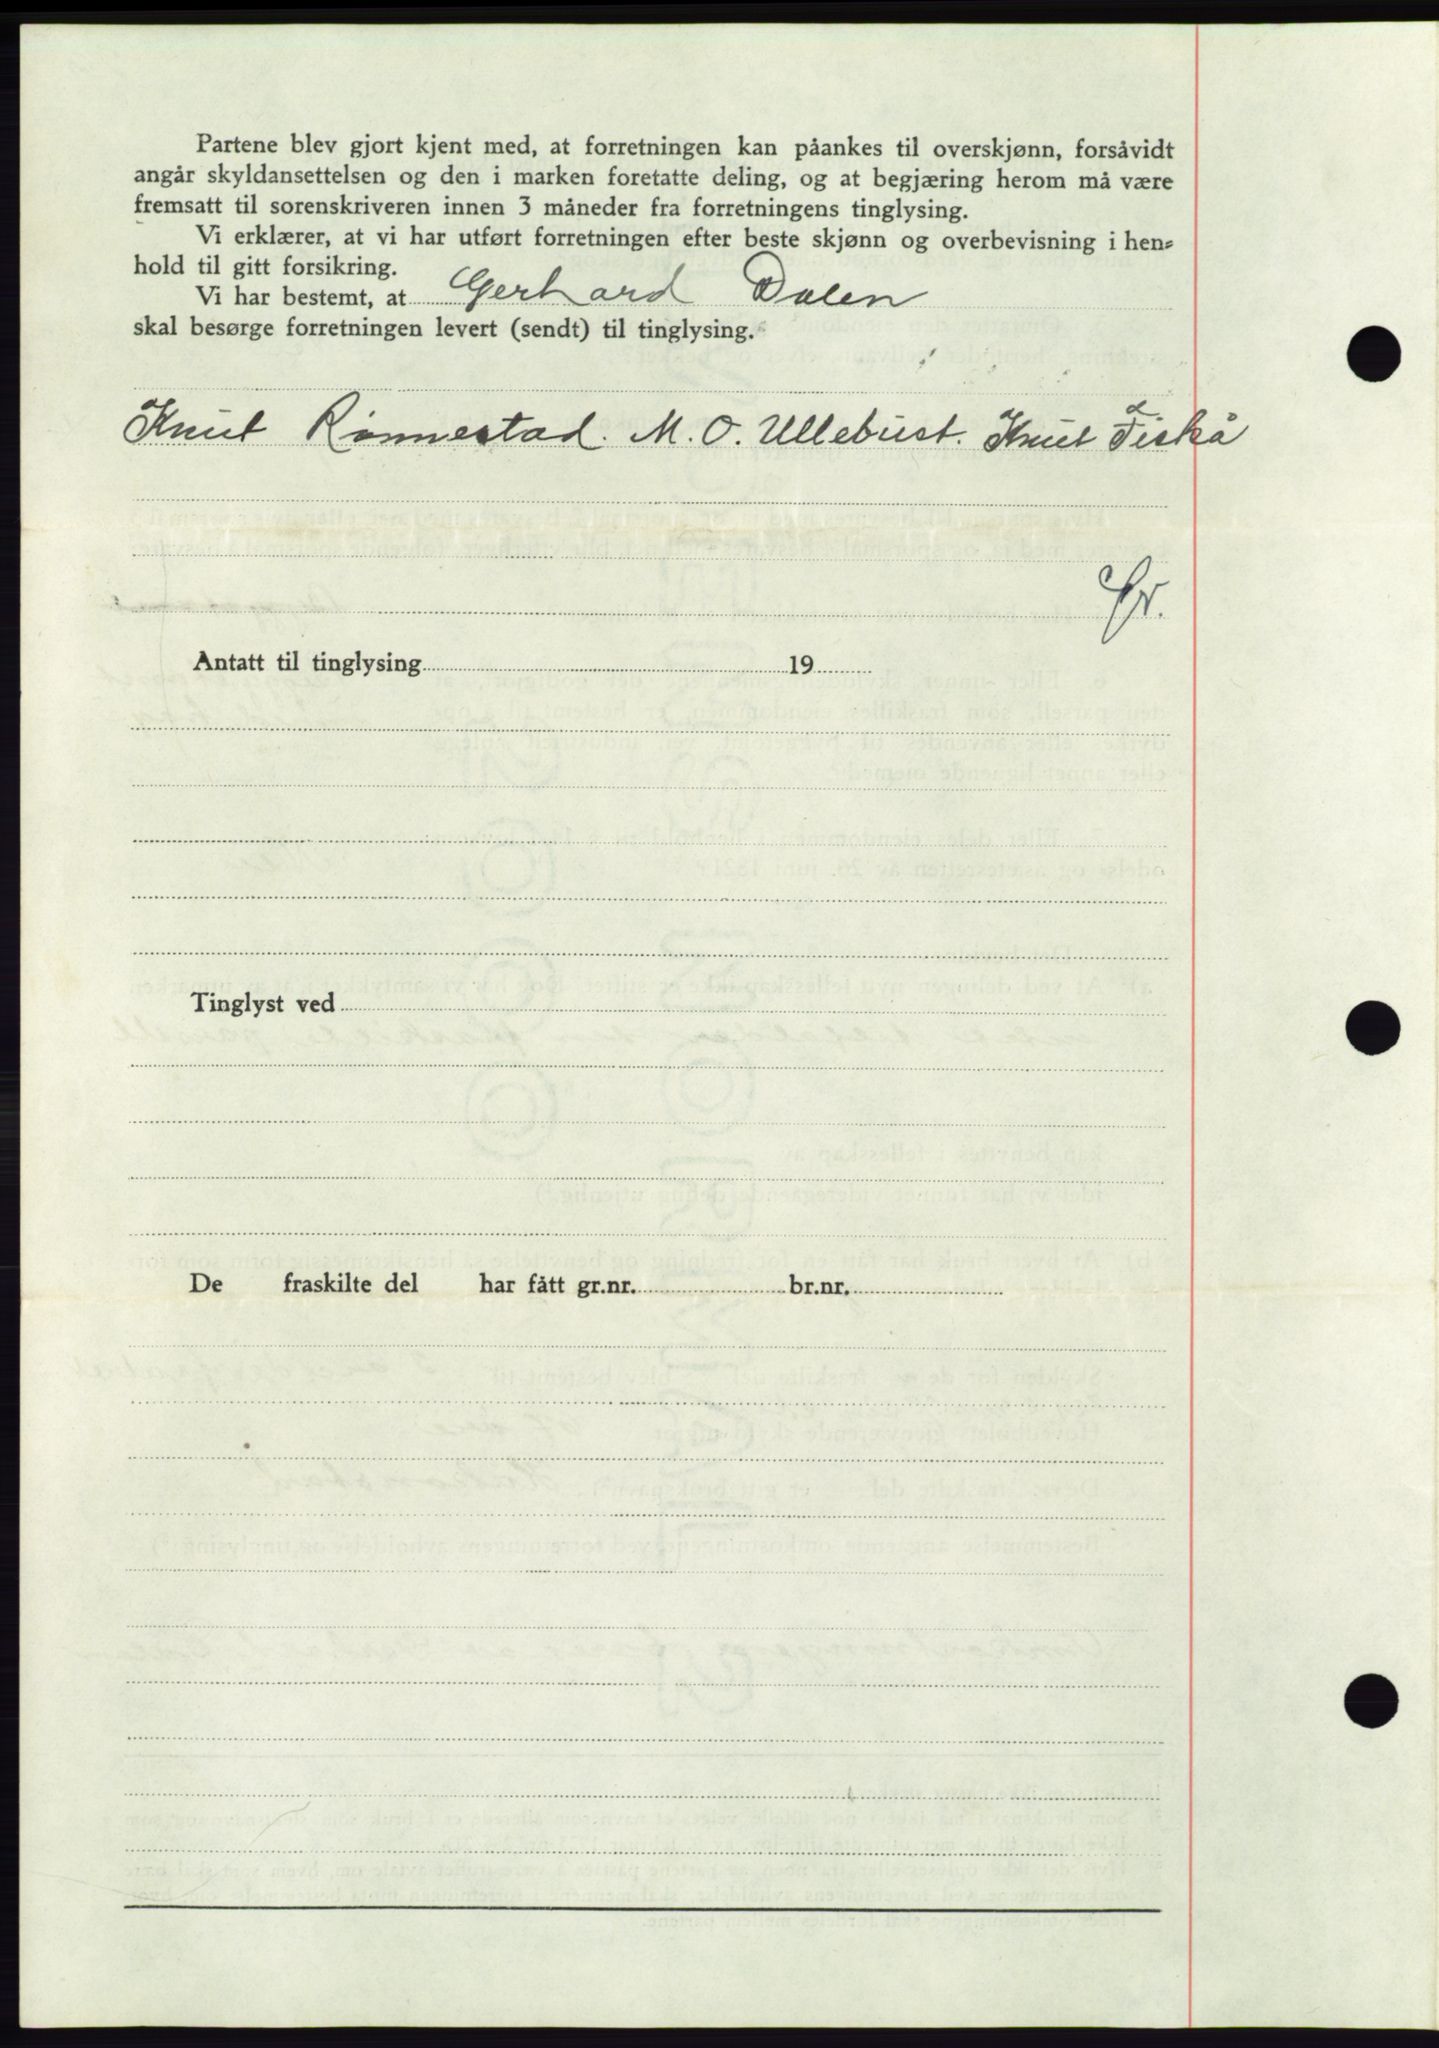 Partene blev gjort kjent med, at forretningen kan påankes til overskjønn, forsåvidt
angår skyldansettelsen og den i marken foretatte deling, og at begjæring herom må være
fremsatt til sorenskriveren innen 3 måneder fra forretningens tinglysing.
Vi erklærer, at vi har utført forretningen efter beste skjønn og overbevisning i hen=
hold til gitt forsikring.
Vi har bestemt, at Gerhard Dalen
skal besørge forretningen levert (sendt) til tinglysing.
Knut Rønnestad. M. O. Ullebust. Knut Fiskå
Antatt til tinglysing 19
Tinglyst ved
De fraskilte del har fått gr.nr. br.nr.